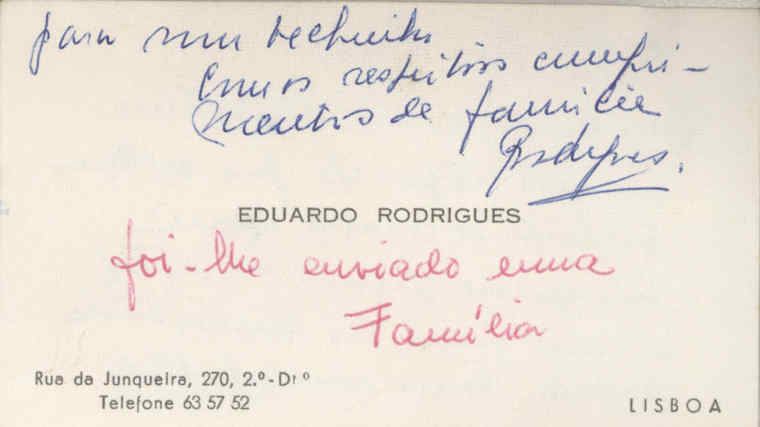 para um
com os respeitosos cumpri-
mentos de família
Rodrigues.
EDUARDO RODRIGUES
foi-lhe enviado uma
Família
Rua da Junqueira, 270, 2.º-Dtº
Telefone 63 57 52
LISBOA